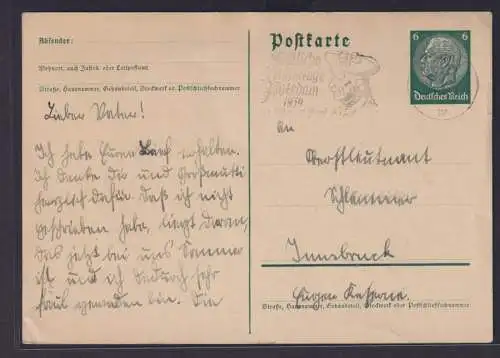 Absender:
Wohnort, auch Zustell- oder Leitpostamt
Straße, Hausnummer, Gebäudeteil, Stockwerk od. Postschließfachnummer
Lieber Vater!
Ich habe Euren erhalten.
Ich danke dir und Großmutti
herzlich dafür. Daß ich nicht
geschrieben habe, liegt daran,
das jetzt bei uns Sommer
ist und ich dadurch sehr
faul geworden bin. Die
Postkarte
Potsdam
1939
6 6
Deutsches Reich
An
Oberstleutnant
Innsbruck
Eugen Kaserne.
Straße, Hausnummer, Gebäudeteil, Stockwerk oder Postschließfachnummer